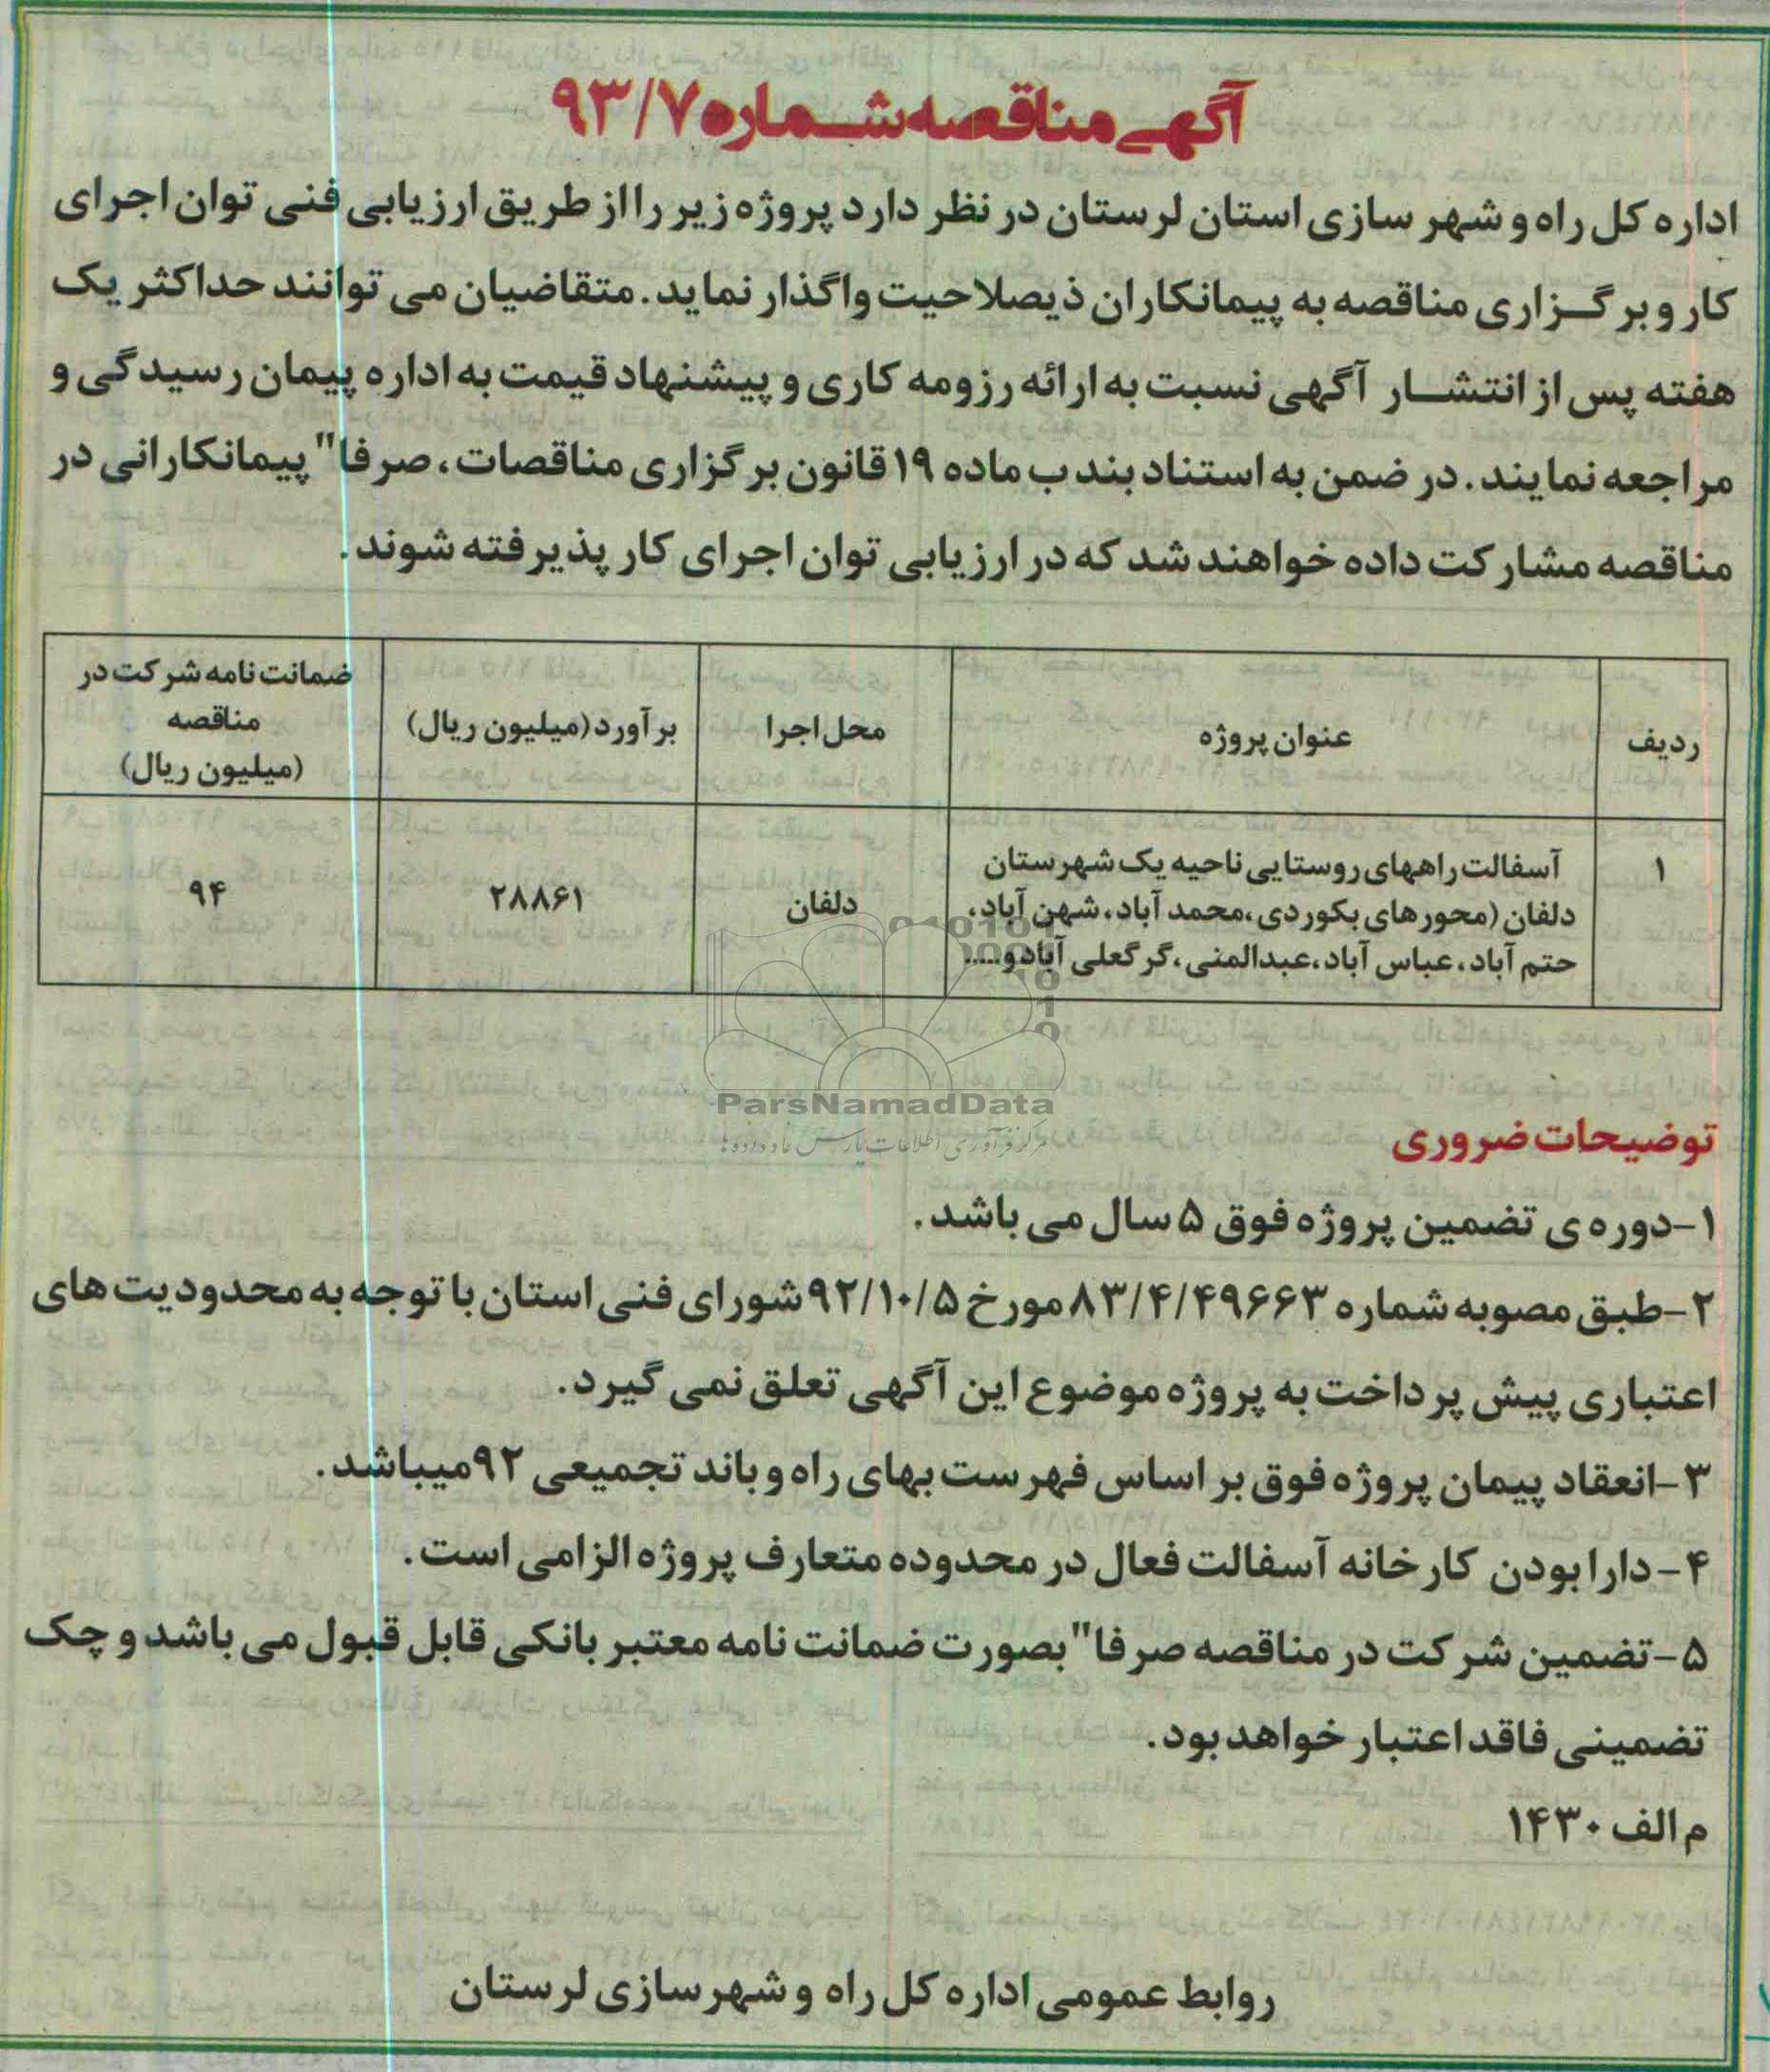 آگهی مناقصه شماره ۹۳/۷
اداره کل راه و شهر سازی استان لرستان در نظر دارد پروژه زیر را از طریق ارزیابی فنی توان اجرای
کار و برگزاری مناقصه به پیمانکاران ذیصلاحیت واگذار نماید. متقاضیان می توانند حداکثر یک
هفته پس از انتشار آگهی نسبت به ارائه رزومه کاری و پیشنهاد قیمت به اداره پیمان رسیدگی و
مراجعه نمایند. در ضمن به استناد بند ب ماده ۱۹ قانون برگزاری مناقصات، صرفا" پیمانکارانی در
مناقصه مشارکت داده خواهند شد که در ارزیابی توان اجرای کار پذیرفته شوند.
ردیف
عنوان پروژه
محل اجرا
برآورد (میلیون ریال)
ضمانت نامه شرکت در
مناقصه
(میلیون ریال)
۱
آسفالت راههای روستایی ناحیه یک شهرستان
دلفان (محورهای بکوردی، محمد آباد، شهن آباد،
حتم آباد، عباس آباد، عبدالمنی، گرگعلی آبادو....
دلفان
۲۸۸۶۱
۹۴
ParsNamadData
مرکز فرآوری اطلاعات پارس نماد داده ها
توضیحات ضروری
۱-دوره ی تضمین پروژه فوق ۵ سال می باشد.
۲-طبق مصوبه شماره ۸۳/۴/۴۹۶۶۳ مورخ ۹۲/۱۰/۵ شورای فنی استان با توجه به محدودیت های
اعتباری پیش پرداخت به پروژه موضوع این آگهی تعلق نمی گیرد.
۳-انعقاد پیمان پروژه فوق بر اساس فهرست بهای راه و باند تجمیعی ۹۲ میباشد.
۴-دارا بودن کارخانه آسفالت فعال در محدوده متعارف پروژه الزامی است.
۵-تضمین شرکت در مناقصه صرفا" بصورت ضمانت نامه معتبر بانکی قابل قبول می باشد و چک
تضمینی فاقد اعتبار خواهد بود.
م الف ۱۴۳۰
روابط عمومی اداره کل راه و شهر سازی لرستان